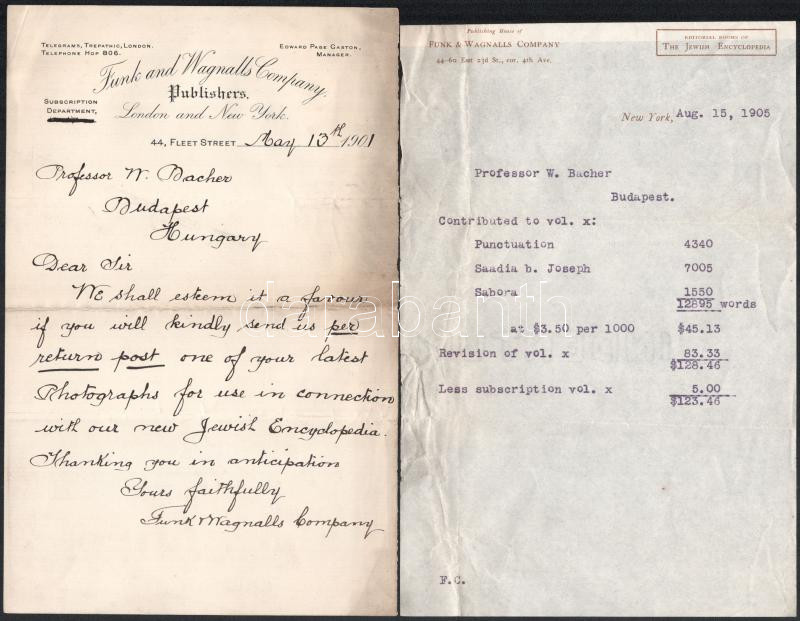 Telegrams, Trepathic, London.
Telephone Hop 806.
Edward Page Gaston,
Manager.
Funk and Wagnalls Company,
Publishers.
London and New York.
Subscription
Department,
44, Fleet Street May 13th 1901
Professor W. Bacher
Budapest
Hungary
Dear Sir
We shall esteem it a favour
if you will kindly send us per
return post one of your latest
Photographs for use in connection
with our new Jewish Encyclopedia.
Thanking you in anticipation
Yours faithfully
Funk & Wagnalls Company
Publishing House of
Funk & Wagnalls Company
44-60 East 23d St., cor. 4th Ave.
Editorial Rooms of
The Jewish Encyclopedia
New York, Aug. 15, 1905
Professor W. Bacher
Budapest.
Contributed to vol. x:
Punctuation 4340
Saadia b. Joseph 7005
Sabora 1550
12895 words
at $3.50 per 1000 $45.13
Revision of vol. x 83.33
$128.46
Less subscription vol. x 5.00
$123.46
F.C.
darabanth